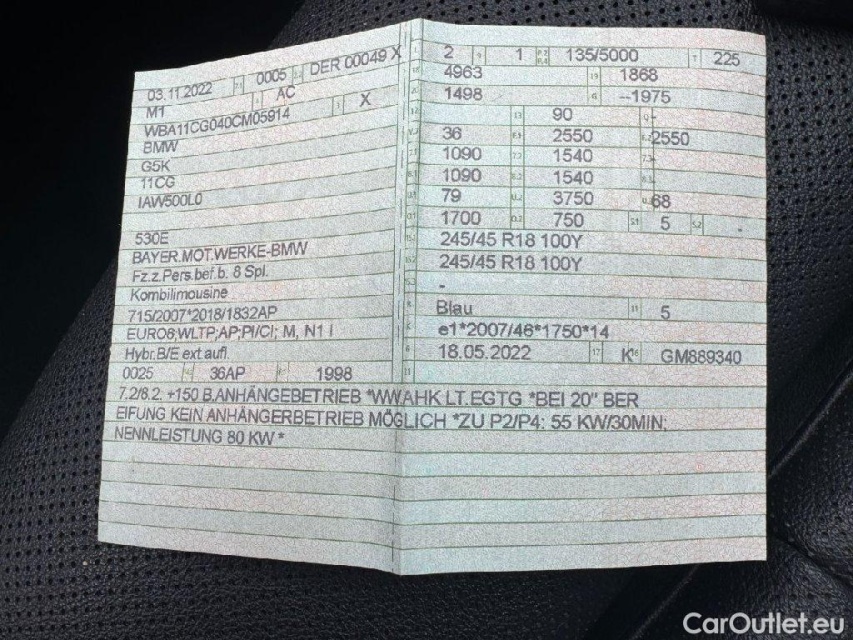 03.11.2022 0005 DER 00049 X
M1 AC
WBA11CG040CM05914 X
BMW
G5K
11CG
IAW500L0
530E
BAYER.MOT.WERKE-BMW
Fz.z.Pers.bef.b. 8 Spl.
Kombilimousine
715/2007*2018/1832AP
EURO6;WLTP;AP;PI/CI; M, N1 I
Hybr.B/E ext.aufl.
0025 36AP 1998
2 1 135/5000 225
4963 1868
1498 --1975
90
36 2550 2550
1090 1540
1090 1540
79 3750 68
1700 750 5 -
245/45 R18 100Y
245/45 R18 100Y
-
Blau 5
e1*2007/46*1750*14
18.05.2022 K GM889340
7.2/8.2. +150 B.ANHÄNGEBETRIEB *WW.AHK LT.EGTG *BEI 20" BER
EIFUNG KEIN ANHÄNGERBETRIEB MÖGLICH *ZU P2/P4: 55 KW/30MIN;
NENNLEISTUNG 80 KW *
CarOutlet.eu